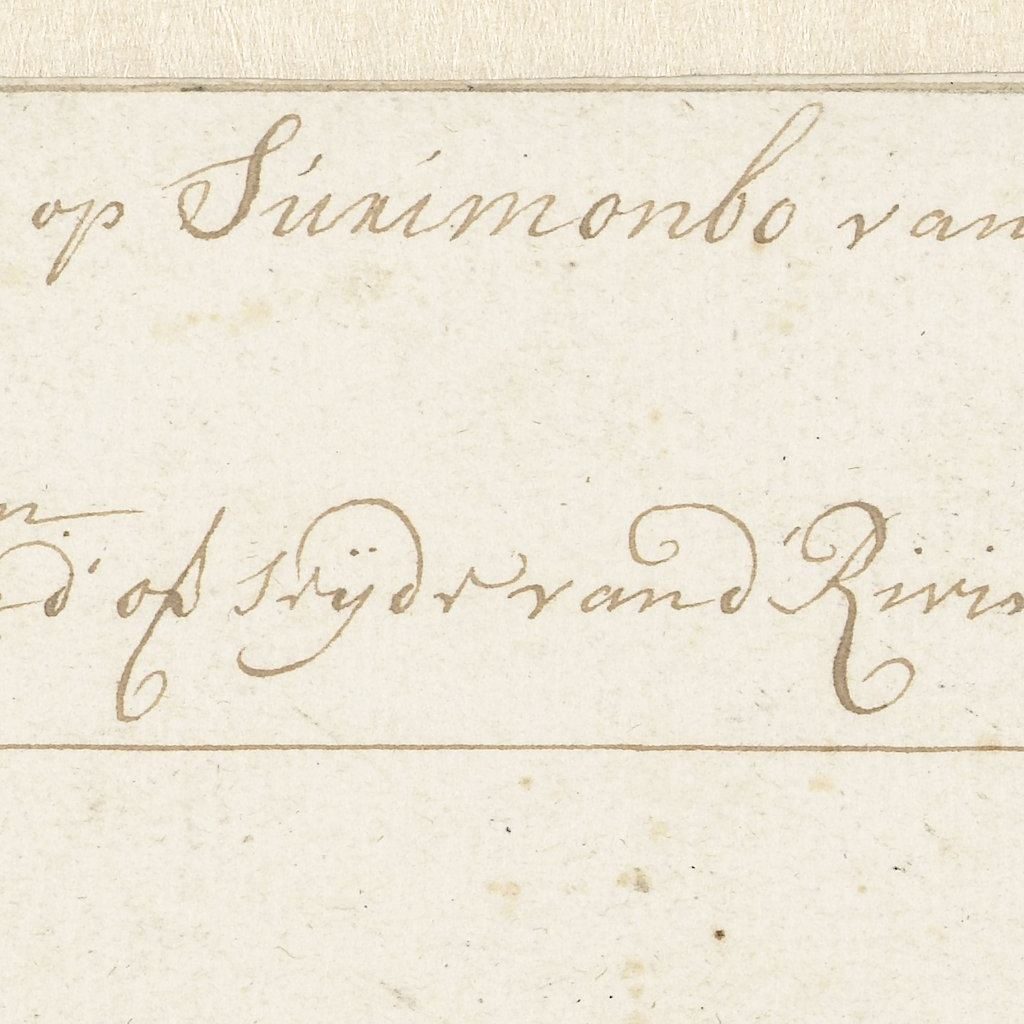 op Surimonbo van
d' of szÿde vand' Rivi